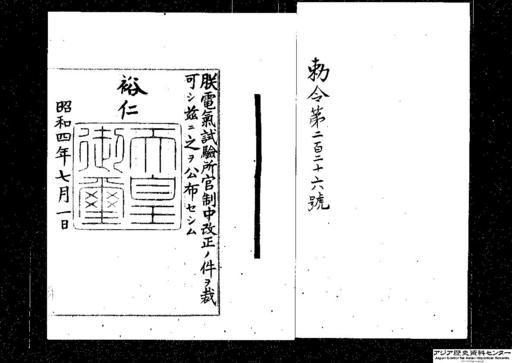 勅令第二百二十六號
朕電氣試驗所官制中改正ノ件ヲ裁
可シ茲ニ之ヲ公布セシム
裕仁
天皇
御璽
昭和四年七月一日
アジア歴史資料センター
Japan Center for Asian Historical Records